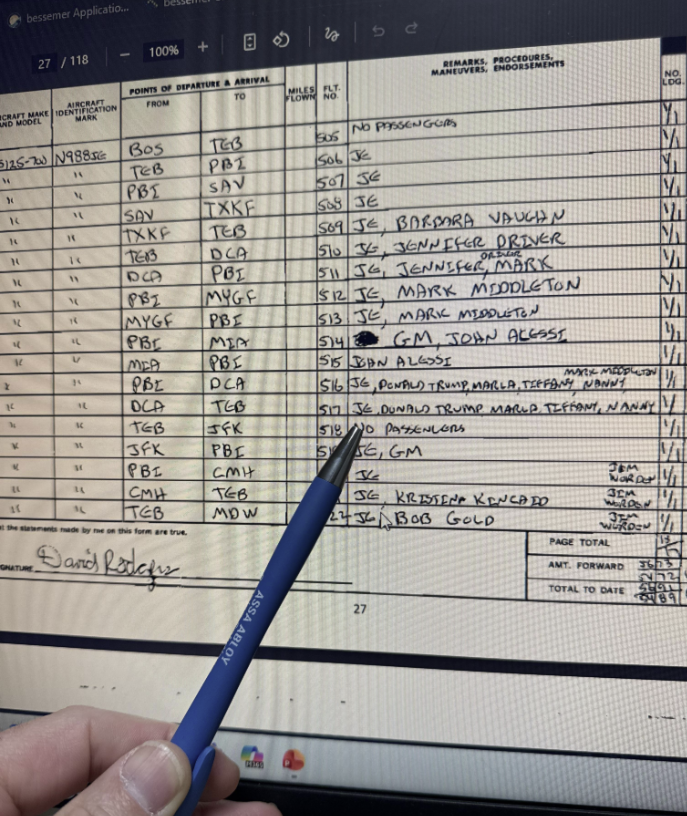 bessemer Applicatio...
27 / 118 — 100% +
POINTS OF DEPARTURE & ARRIVAL
REMARKS, PROCEDURES,
MANEUVERS, ENDORSEMENTS
AIRCRAFT IDENTIFICATION MARK FROM TO MILES FLOWN FLT. NO. NO. LDG.
AND MODEL
BOS TEB 505 NO PASSENGERS 1/1
N988JE TEB PBI 506 JE 1/1
" " PBI SAV 507 JE 1/1
" " SAV TXKF 508 JE 1/1
" " TXKF TEB 509 JE, BARBARA VAUGHN 1/1
" " TEB DCA 510 JE, JENNIFER DRIVER 1/1
" " DCA PBI 511 JE, JENNIFER DRIVER, MARK 1/1
" " PBI MYGF 512 JE, MARK MIDDLETON 1/1
" " MYGF PBI 513 JE, MARK MIDDLETON 1/1
" " PBI MIA 514 GM, JOHN ALESSI 1/1
" " MIA PBI 515 JOHN ALESSI 1/1
" " PBI DCA 516 JE, DONALD TRUMP, MARLA, TIFFANY, NANNY MARK MIDDLETON 1/1
" " DCA TEB 517 JE, DONALD TRUMP, MARLA, TIFFANY, NANNY 1/1
" " TEB JFK 518 NO PASSENGERS 1/1
" " JFK PBI JE, GM 1/1
" " PBI CMH JE JIM WORDEN 1/1
" " CMH TEB JE, KRISTINA KINCAID JIM WORDEN 1/1
" " TEB MDW 22 JE, BOB GOLD JIM WORDEN 1/1
the statements made by me on this form are true.
David Rodgers
PAGE TOTAL
AMT. FORWARD
TOTAL TO DATE
27
ASSA ABLOY